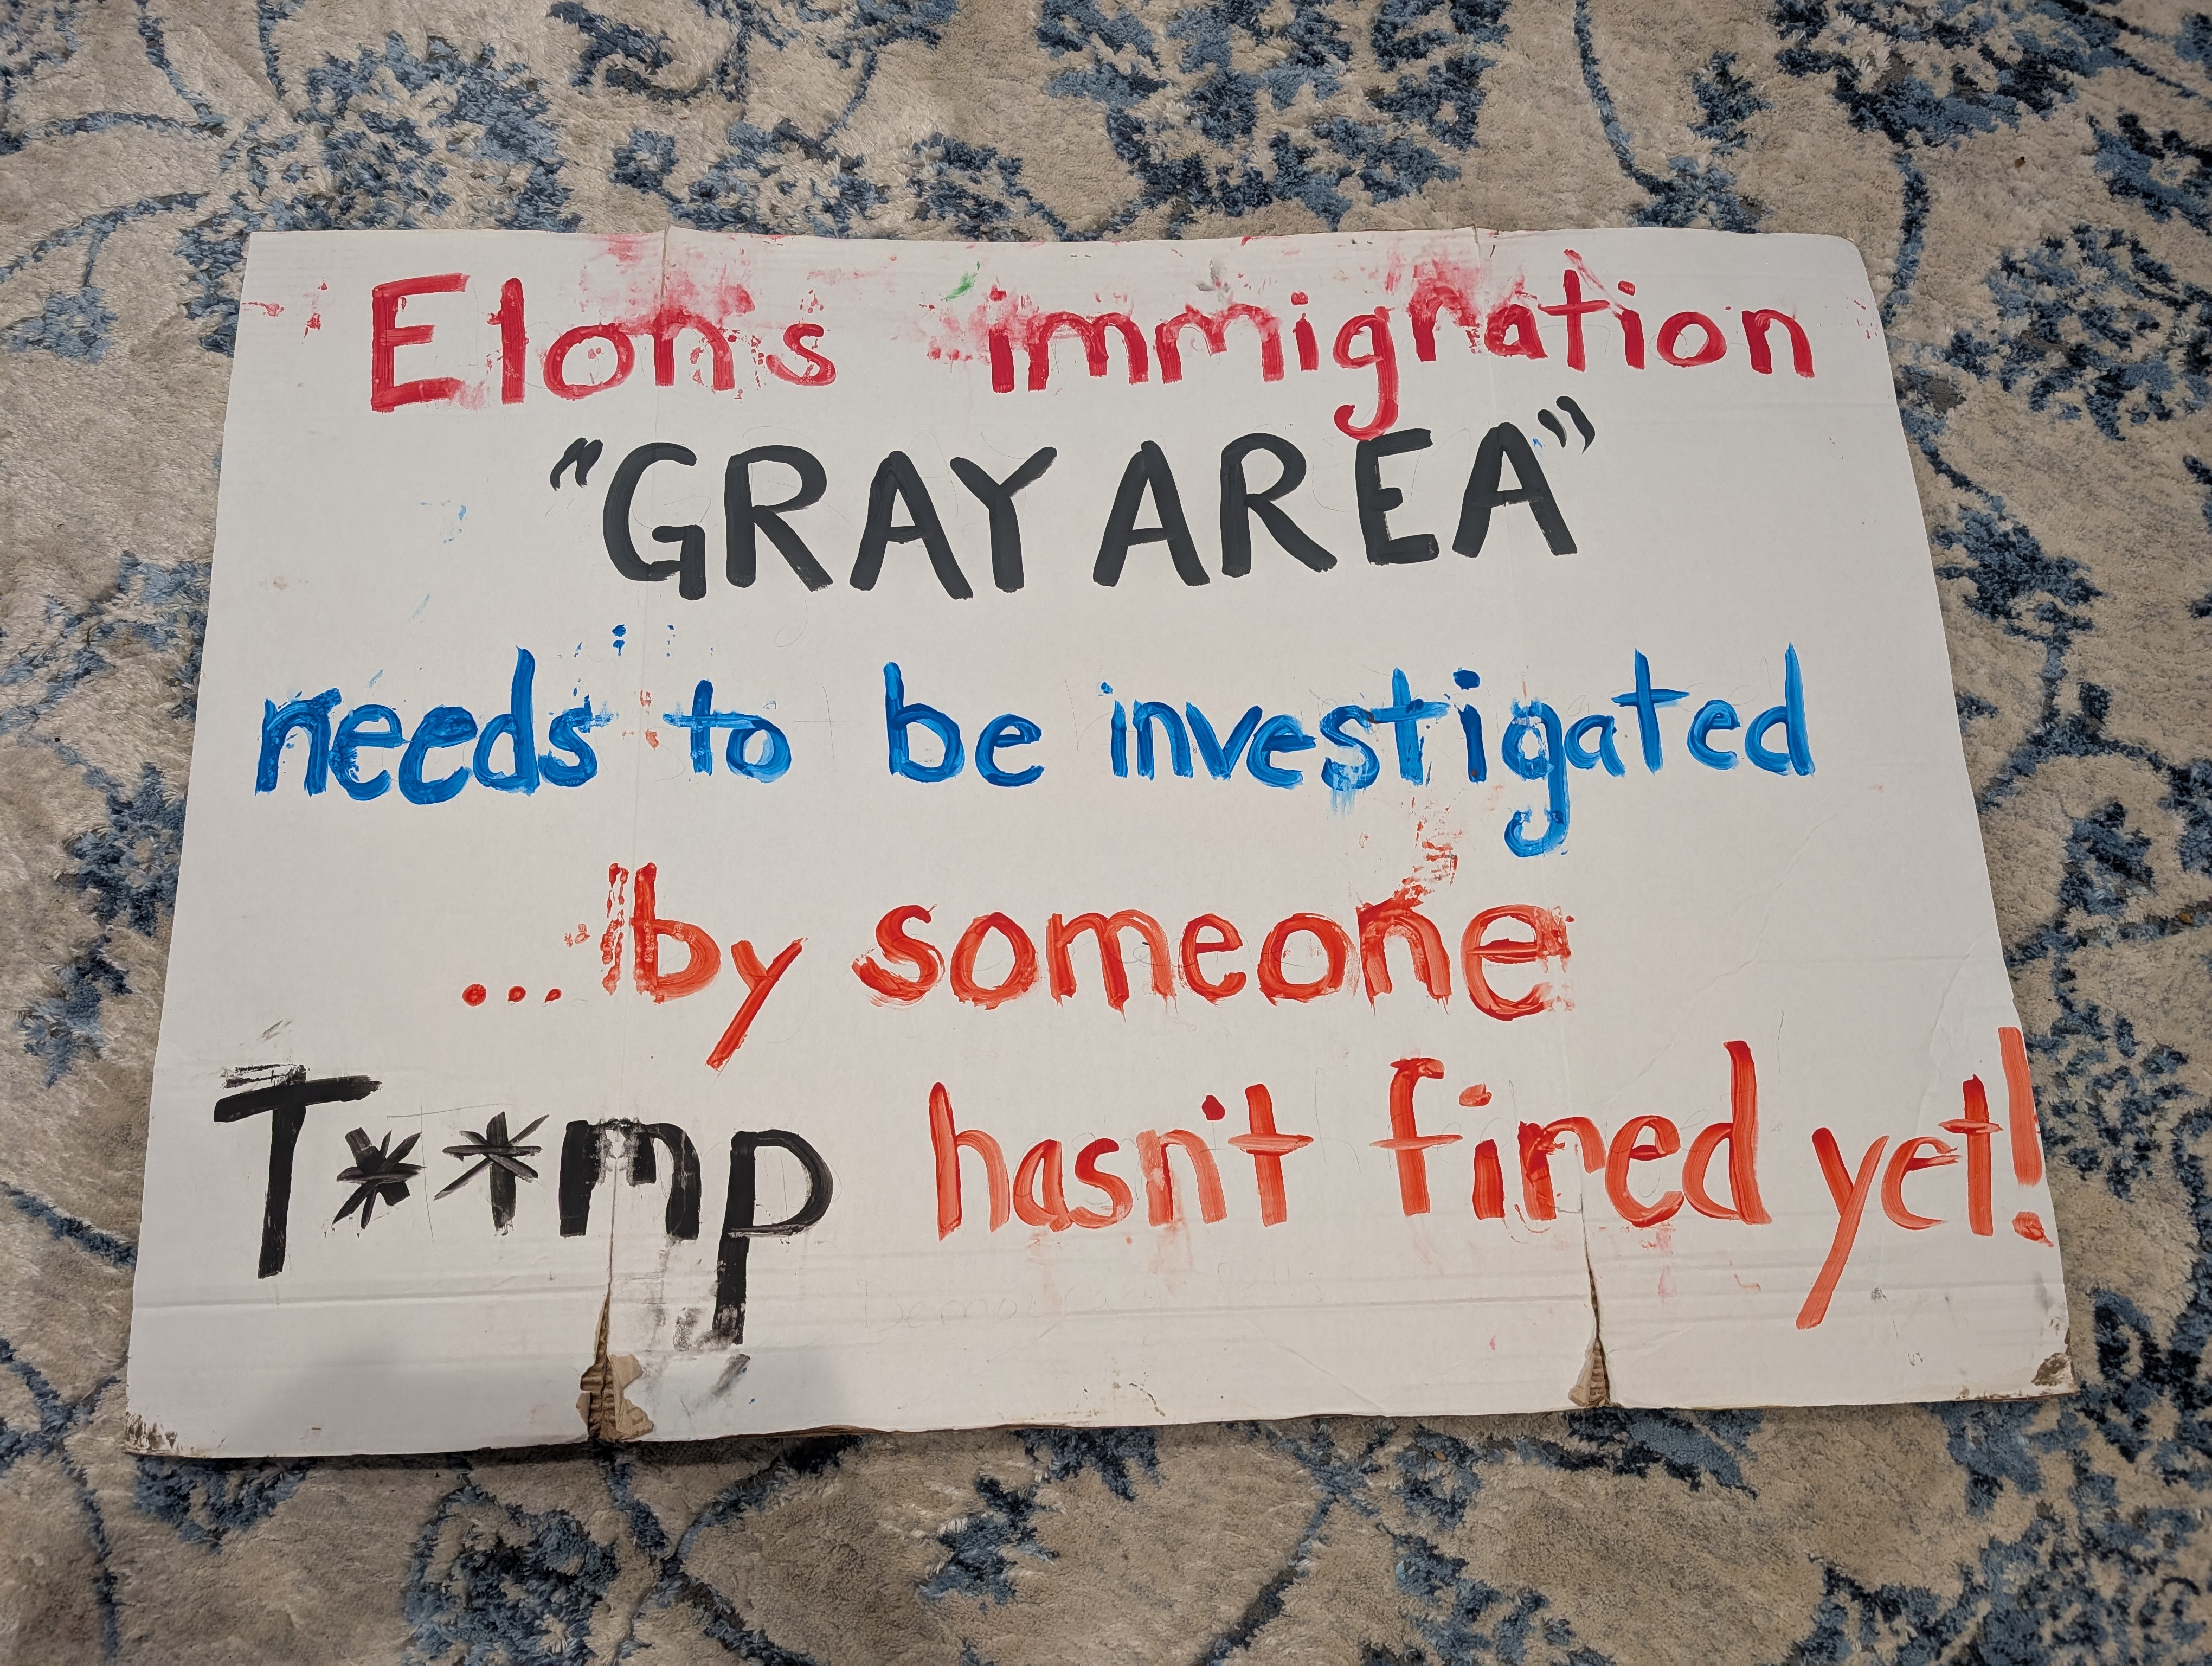 Elon's immigration
"GRAY AREA"
needs to be investigated
...by someone
T**mp hasn't fired yet!